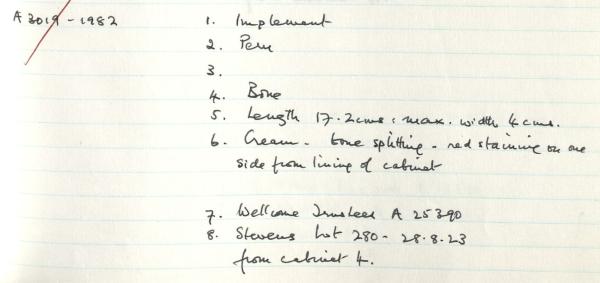 A 3019-1982
1. Implement
2. Peru
3.
4. Bone
5. Length 17.2cms: max. width 4cms.
6. Cream - bone splitting - red staining on one
side from lining of cabinet
7. Wellcome Trustees A 25390
8. Stevens Lot 280 - 28.8.23
from cabinet 4.